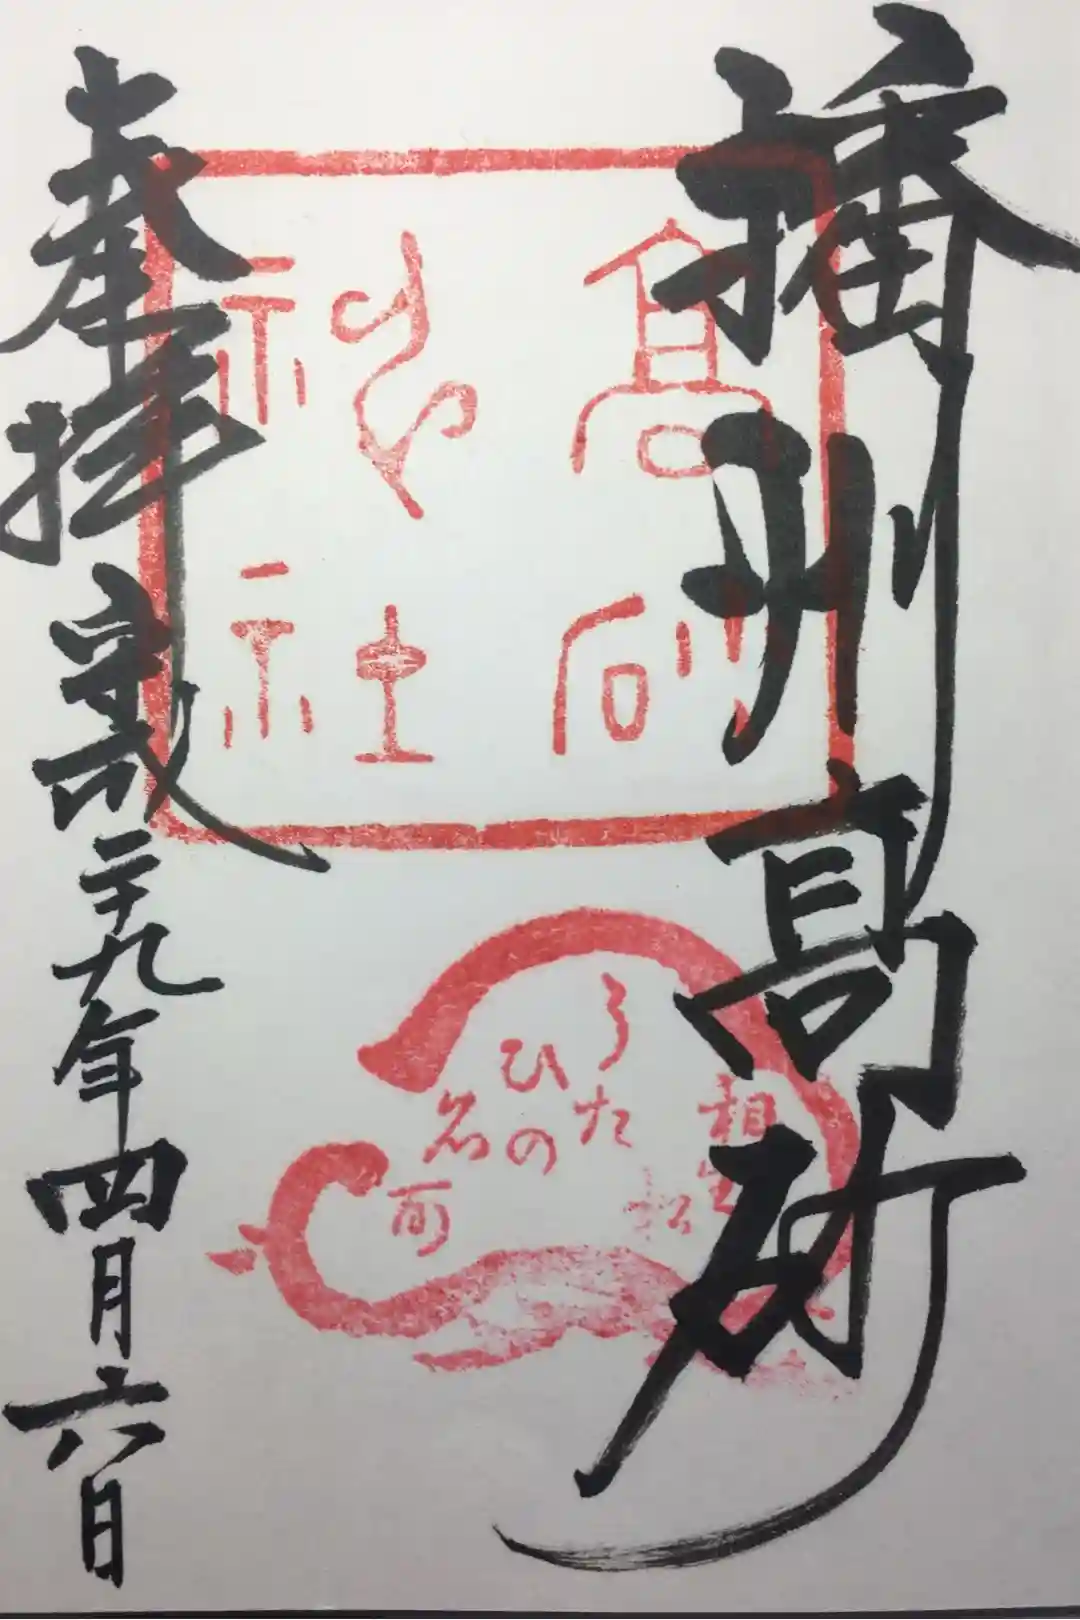 播州高砂
高砂
神社
相生
松
うた
ひの
名所
奉拝 平成二十九年四月六日